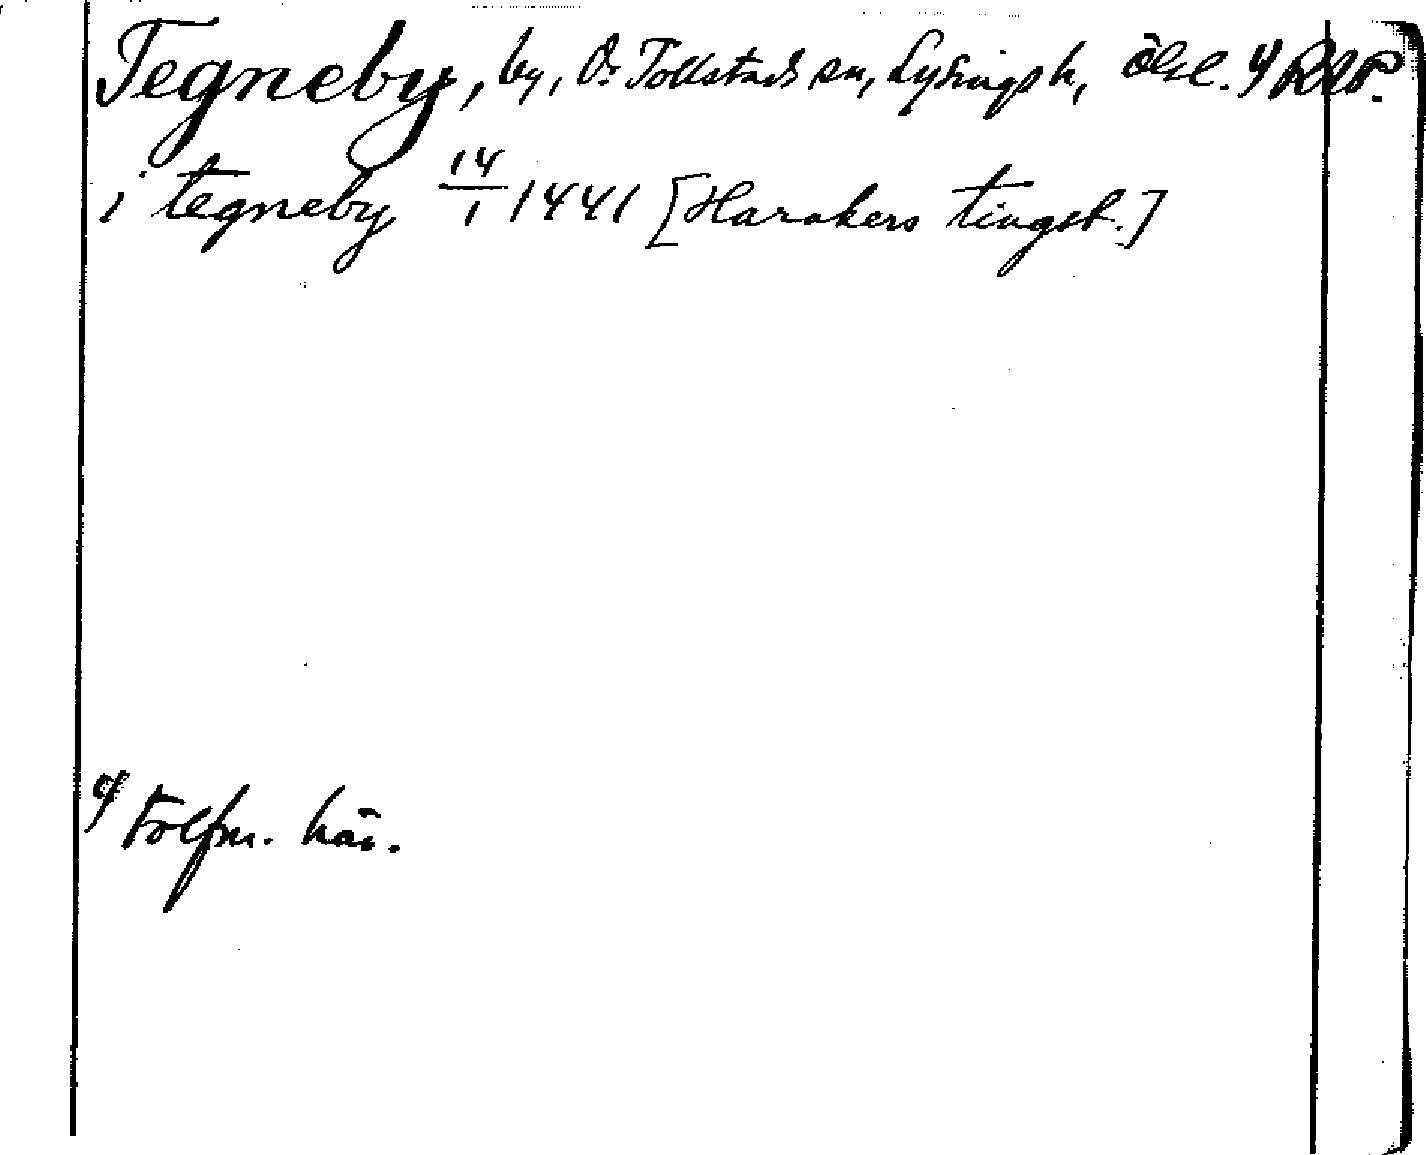 Tegneby, by, Ö. Tollstads sn, Lysings h, Ögl. 1) RAP.
i tegneby 14/1 1441 [Harakers tingst.]
1) Tolfm. här.